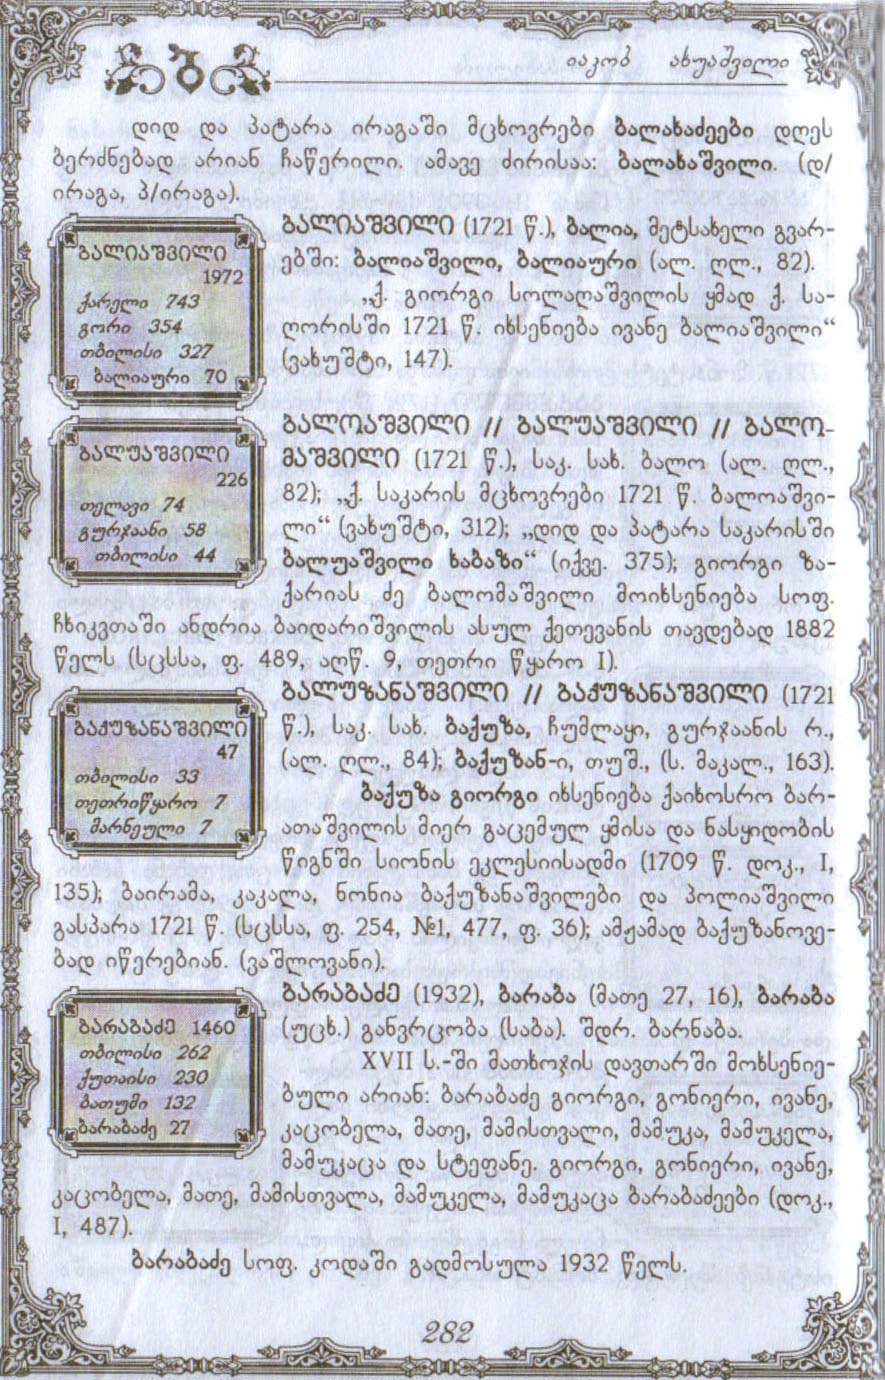 იაკობ ახუაშვილი
დიდ და პატარა ირაგაში მცხოვრები ბალახაძეები დღეს
ბერძნებად არიან ჩაწერილი. ამავე ძირისაა: ბალახაშვილი. (დ/
ირაგა, პ/ირაგა).
ბალიაშვილი
1972
ქარელი 743
გორი 354
თბილისი 327
ბალიაური 70
ბალიაშვილი (1721 წ.), ბალია, მეტსახელი გვარ-
ებში: ბალიაშვილი, ბალიაური (ალ. ღლ., 82).
„ქ. გიორგი სოლაღაშვილის ყმად ქ. სა-
ღორისში 1721 წ. იხსენიება ივანე ბალიაშვილი“
(ვახუშტი, 147).
ბალუაშვილი
226
თელავი 74
გურჯაანი 58
თბილისი 44
ბალოაშვილი // ბალუაშვილი // ბალო-
მაშვილი (1721 წ.), საკ. სახ. ბალო (ალ. ღლ.,
82); „ქ. საკარის მცხოვრები 1721 წ. ბალოაშვი-
ლი“ (ვახუშტი, 312); „დიდ და პატარა საკარისში
ბალუაშვილი ხაბაზი“ (იქვე. 375); გიორგი ზა-
ქარიას ძე ბალომაშვილი მოიხსენიება სოფ.
ჩხიკვთაში ანდრია ბაიდარიშვილის ასულ ქეთევანის თავდებად 1882
წელს (სცსსა, ფ. 489, აღწ. 9, თეთრი წყარო I).
ბაქუზანაშვილი
47
თბილისი 33
თეთრიწყარო 7
მარნეული 7
ბალუზანაშვილი // ბაქუზანაშვილი (1721
წ.), საკ. სახ. ბაქუზა, ჩუმლაყი, გურჯაანის რ.,
(ალ. ღლ., 84); ბაქუზან-ი, თუშ., (ს. მაკალ., 163).
ბაქუზა გიორგი იხსენიება ქაიხოსრო ბარ-
ათაშვილის მიერ გაცემულ ყმისა და ნასყიდობის
წიგნში სიონის ეკლესიისადმი (1709 წ. დოკ., I,
135); ბაირამა, კაკალა, ნონია ბაქუზანაშვილები და პოლიაშვილი
გასპარა 1721 წ. (სცსსა, ფ. 254, №1, 477, ფ. 36); ამჟამად ბაქუზანოვე-
ბად იწერებიან. (ვაშლოვანი).
ბარაბაძე 1460
თბილისი 262
ქუთაისი 230
ბათუმი 132
ბარაბაძე 27
ბარაბაძე (1932), ბარაბა (მათე 27, 16), ბარაბა
(უცხ.) განვრცობა (საბა). შდრ. ბარნაბა.
XVII ს.-ში მათხოჯის დავთარში მოხსენიე-
ბული არიან: ბარაბაძე გიორგი, გონიერი, ივანე,
კაცობელა, მათე, მამისთვალი, მამუკა, მამუკელა,
მამუკაცა და სტეფანე. გიორგი, გონიერი, ივანე,
კაცობელა, მათე, მამისთვალა, მამუკელა, მამუკაცა ბარაბაძეები (დოკ.,
I, 487).
ბარაბაძე სოფ. კოდაში გადმოსულა 1932 წელს.
282